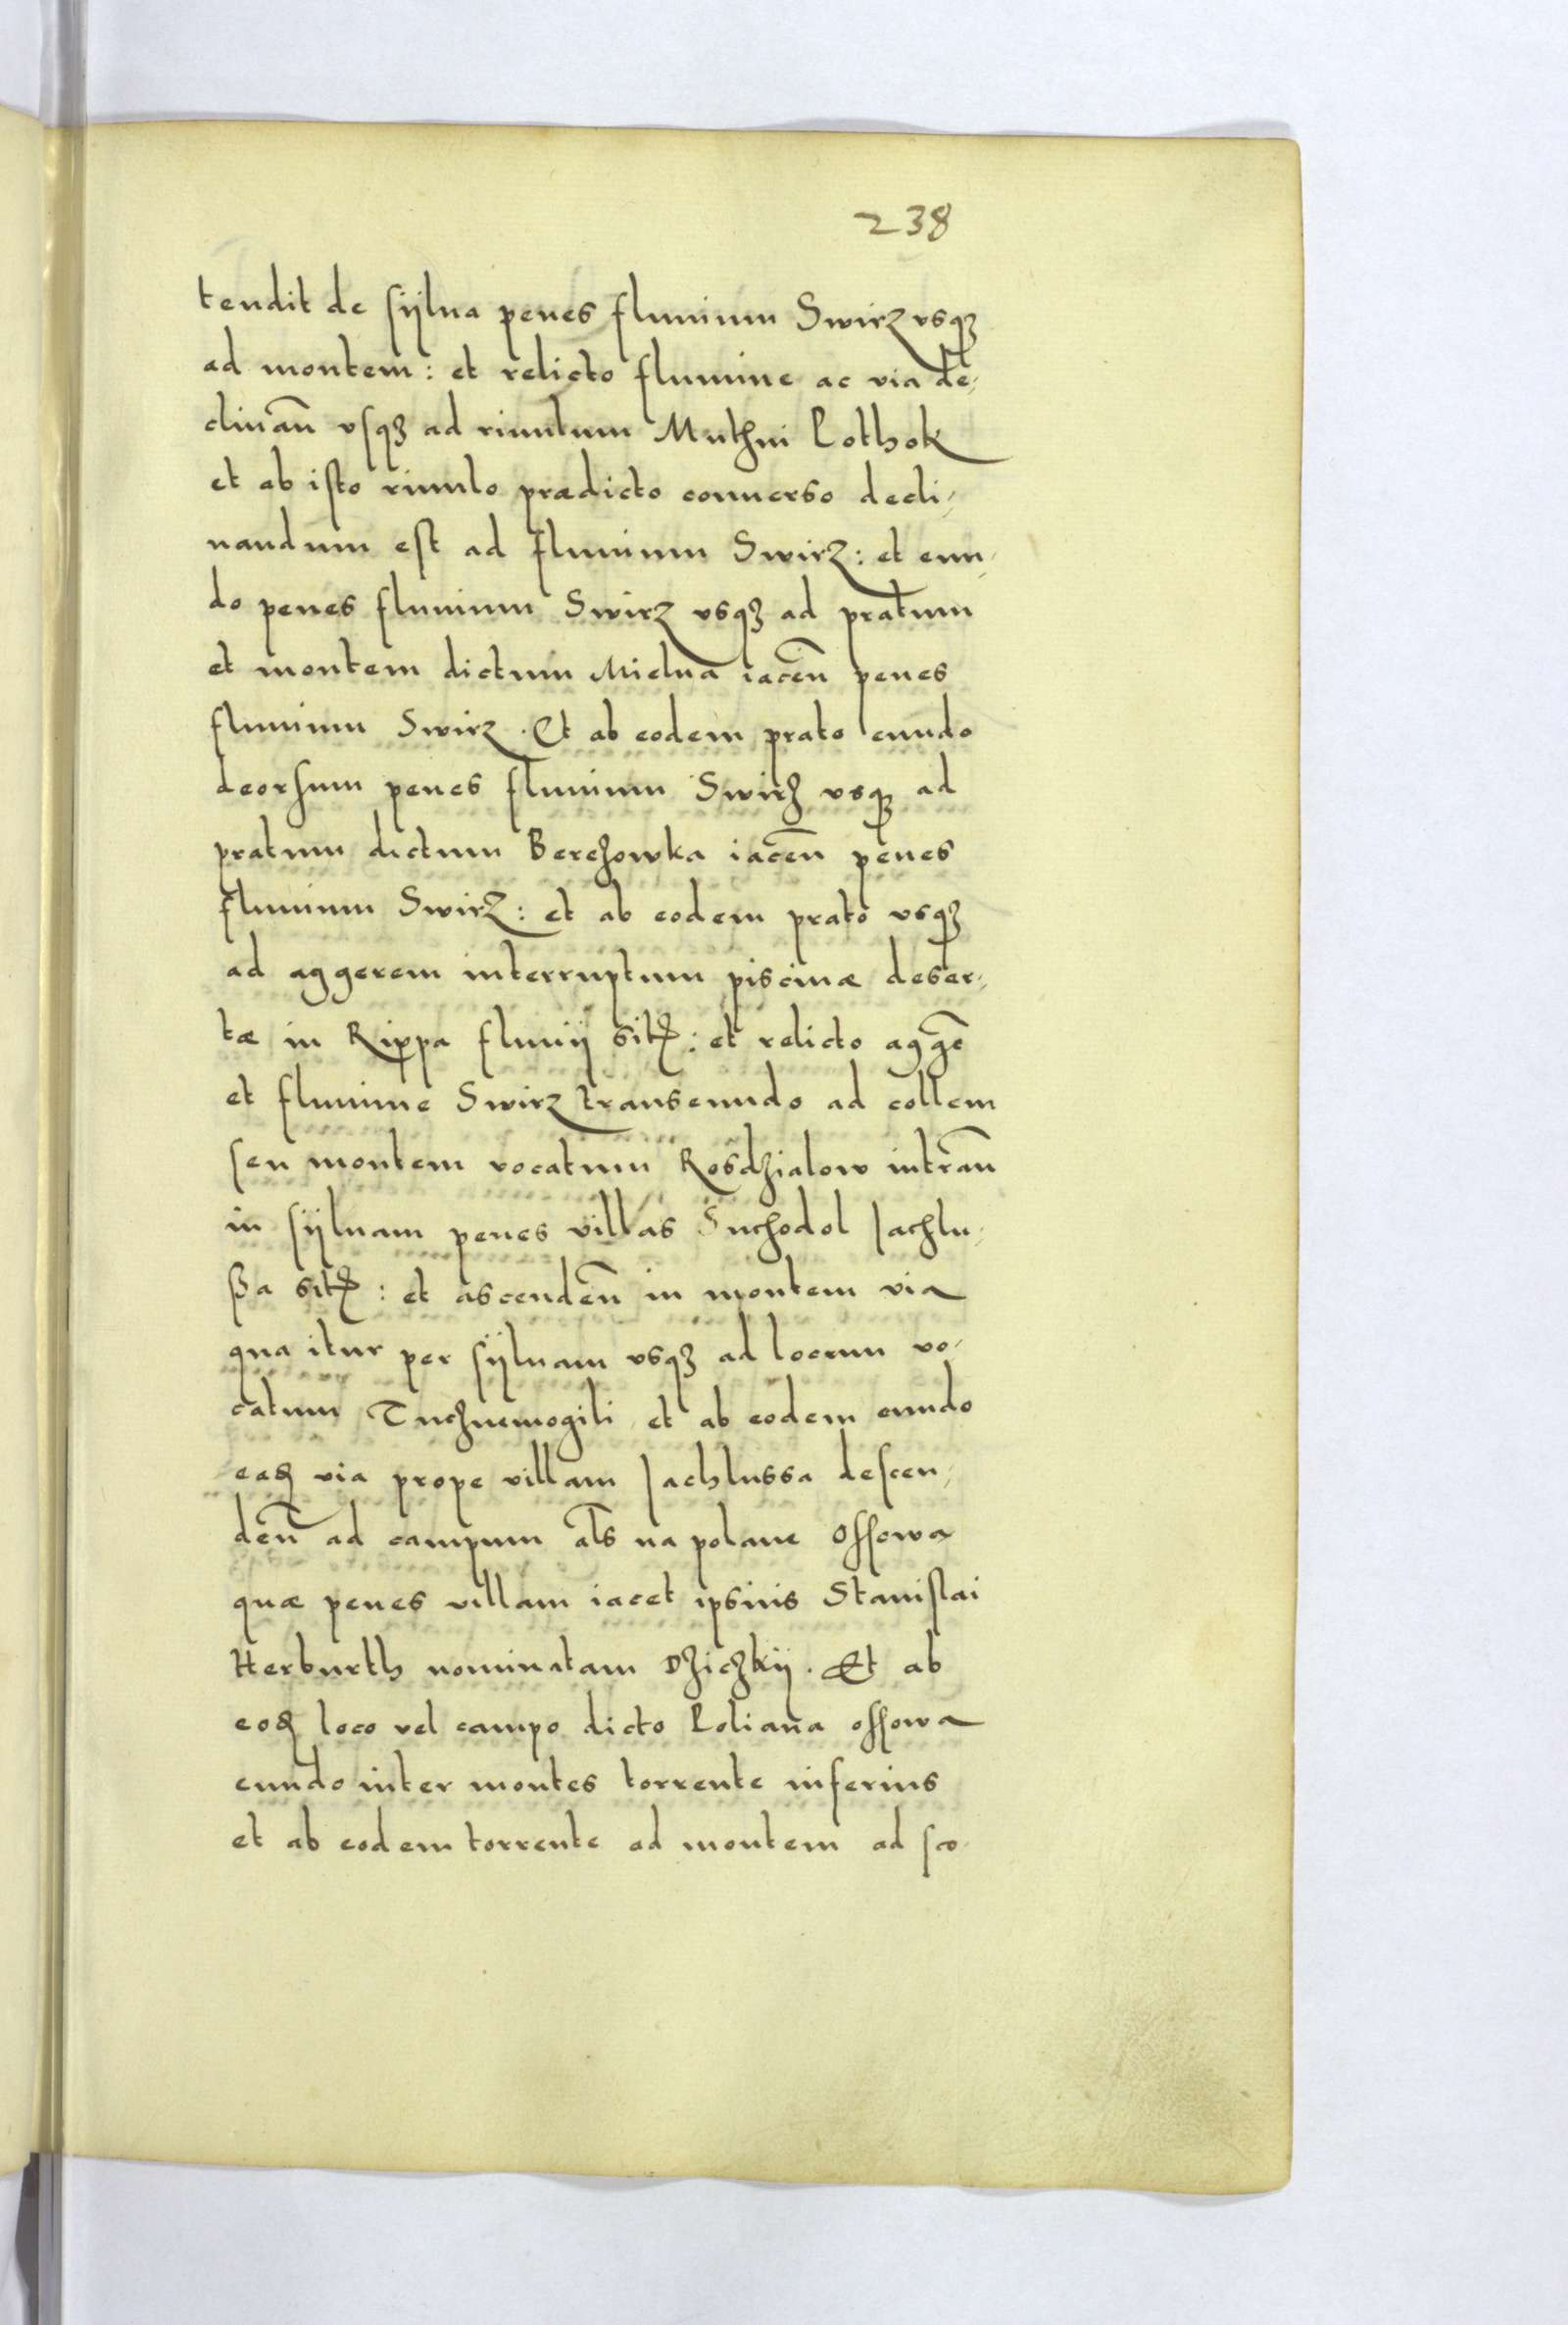 238
tendit de sÿlua penes fluuium Swirz vsqꝫ
ad montem: et relicto flumine ac via de-
clinan̄ vsqꝫ ad riuulum Muthni Pothok
et ab isto riuulo prædicto conuerso decli-
nandum est ad fluuium Swirz: et eun-
do penes fluuium Swirz vsqꝫ ad pratum
et montem dictum Mielna iacen̄ penes
fluuium Swirz. Et ab eodem prato eundo
deorsum penes fluuium Swirz vsqꝫ ad
pratum dictum Berezowka iacen̄ penes
fluuium Swirz: et ab eodem prato vsqꝫ
ad aggerem interruptum piscinæ deser-
tæ in Rippa fluuij sitꝭ: et relicto aggē
et flumine Swirz transeundo ad collem
seu montem vocatum Rosdzialow intran̄
in sÿluam penes villas Suchodol Jachlu-
ßa sitꝭ: et ascenden̄ in montem via
qua itur per sÿluam vsqꝫ ad locum vo-
catum Tucznemogili et ab eodem eundo
eaꝺ via prope villam Jachlussa descen-
den̄ ad campum al̄s na polane Ossowa
quæ penes villam iacet ipsius Stanislai
Herburth nominatam Dziczkÿ. Et ab
eoꝺ loco vel campo dicto Poliana ossowa
eundo inter montes torrente inferius
et ab eodem torrente ad montem ad sco-